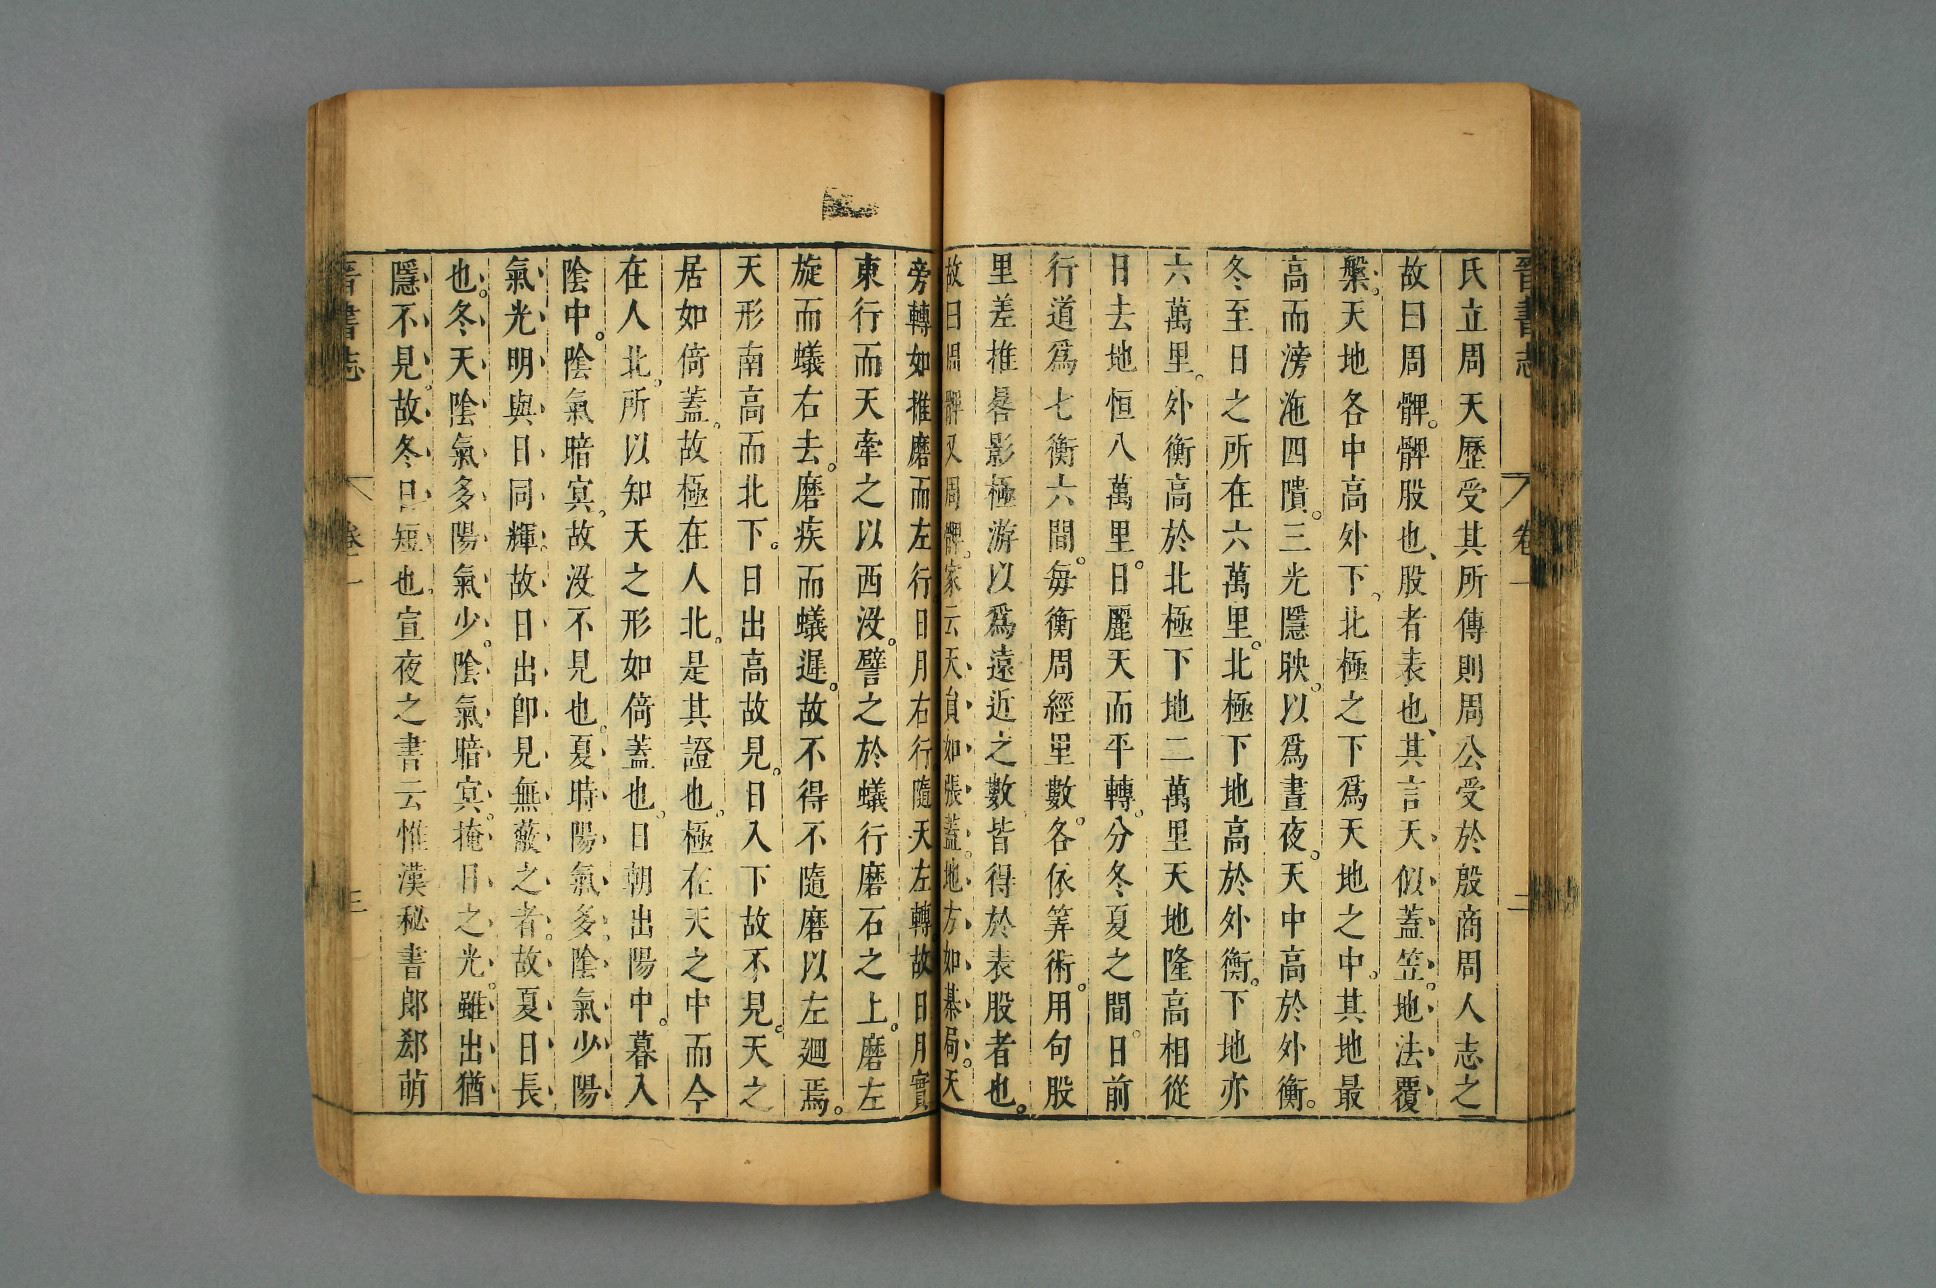 晉書志 卷一 二
氏立周天歷受其所傳則周公受於殷商周人志之
故曰周髀。髀股也、股者表也、其言天似蓋笠。地法覆
槃。天地各中高外下、北極之下爲天地之中。其地最
高而滂沲四隤。三光隱映。以爲晝夜。天中高於外衡。
冬至日之所在六萬里。北極下地高於外衡。下地亦
六萬里。外衡高於北極下地二萬里天地隆高相從
日去地恒八萬里。日麗天而平轉。分冬夏之間。日前
行道爲七衡六間。每衡周經里數。各依筭術。用句股
里差推晷影極游以爲遠近之數皆得於表股者也。
故曰周髀又周髀。家云天員如張蓋。地方如棊局。天
旁轉如推磨而左行日月右行隨天左轉故日月實
東行而天牽之以西沒。譬之於蟻行磨石之上。磨左
旋而蟻右去。磨疾而蟻遲。故不得不隨磨以左𢌞焉。
天形南高而北下。日出高故見。日入下故不見。天之
居如倚蓋。故極在人北。是其證也。極在天之中而今
在人北。所以知天之形如倚蓋也。日朝出陽中。暮入
陰中。陰氣暗冥。故沒不見也。夏時陽氣多。陰氣少陽
氣光明與日同輝。故日出卽見無蔽之者。故夏日長
也。冬天陰氣多陽氣少。陰氣暗冥。掩日之光。雖出猶
隱不見。故冬日短也。宣夜之書云惟漢秘書郎郄萌
晉書志 卷一 三